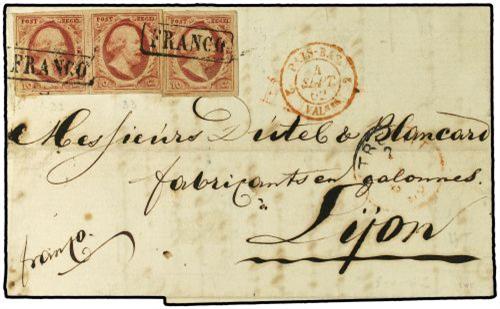 POST ZEGEL POST ZEGEL POST ZEGEL
FRANCO FRANCO
PAYS-BAS
4
SEPT
Messieurs Dutel & Blancard
fabricants en galonnes.
à
Lyon
franco.